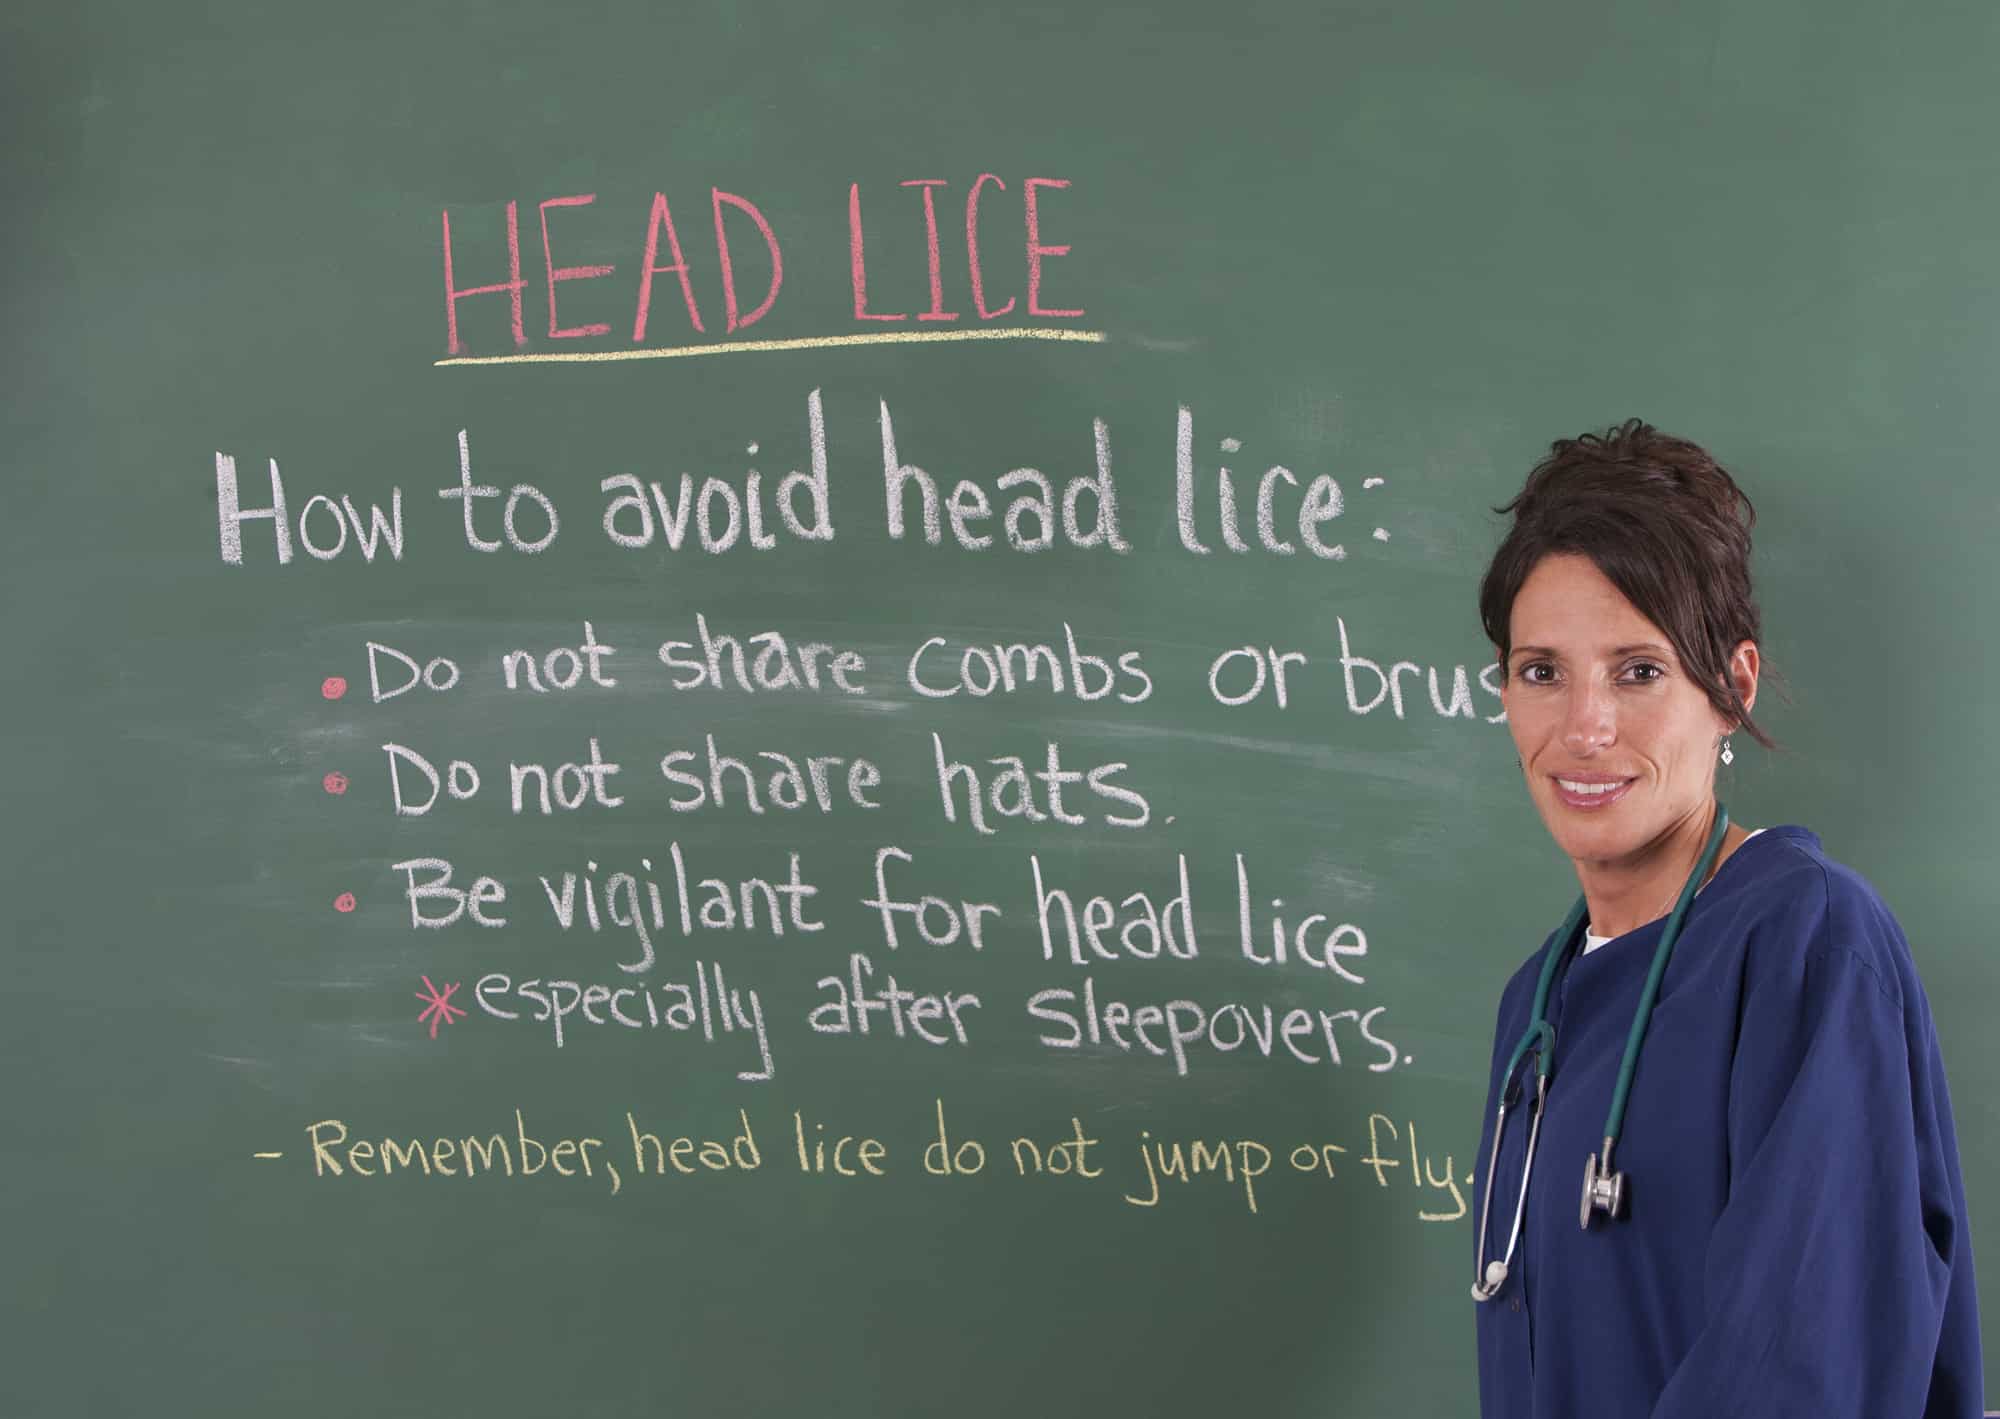 HEAD LICE
How to avoid head lice:
• Do not share combs or brus
• Do not share hats.
• Be vigilant for head lice
* especially after sleepovers.
- Remember, head lice do not jump or fly.